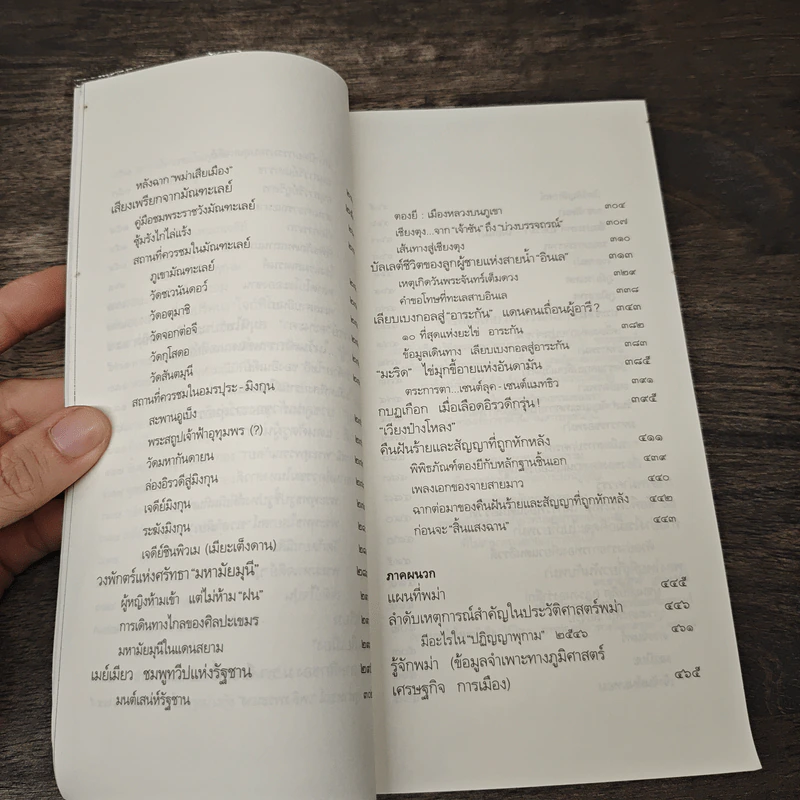 หลังฉาก "พม่าเสียเมือง"
เสียงเพรียกจากมัณฑะเลย์
คู่มือชมพระราชวังมัณฑะเลย์
ซุ้มรังไก่ไล่แร้ง
สถานที่ควรชมในมัณฑะเลย์
ภูเขามัณฑะเลย์
วัดชเวนันดอว์
วัดอตุมาชิ
วัดจอกต่อจี
วัดกุโสดอ
วัดสันตมุนี
สถานที่ควรชมในอมรปุระ - มิงกุน
สะพานอูเบ็ง
พระสถูปเจ้าฟ้าอุทุมพร (?)
วัดมหากันดายน
ล่องอิรวดีสู่มิงกุน
เจดีย์มิงกุน
ระฆังมิงกุน
เจดีย์ซินพิวเม (เมียะเต็งดาน)
วงพักตร์แห่งศรัทธา "มหามัยมุนี"
ผู้หญิงห้ามเข้า แต่ไม่ห้าม "ฝน"
การเดินทางไกลของศิลปะเขมร
มหามัยมุนีในแดนสยาม
เมย์เมียว ชมพูทวีปแห่งรัฐชาน
มนต์เสน่ห์รัฐชาน
ตองยี : เมืองหลวงบนภูเขา ๓๐๔
เชียงตุง...จาก "เจ้าชัน" ถึง "บ่วงบรรจถรณ์" ๓๐๗
เส้นทางสู่เชียงตุง ๓๑๐
บัลเลต์ชีวิตของลูกผู้ชายแห่งสายน้ำ "อินเล" ๓๑๓
เหตุเกิดวันพระจันทร์เต็มดวง ๓๒๙
คำขอโทษที่ทะเลสาบอินเล ๓๓๘
เลียบเบงกอลสู่ "อาระกัน" แดนคนเถื่อนผู้อารี? ๓๔๓
๑๐ ที่สุดแห่งยะไข่ อาระกัน ๓๘๒
ข้อมูลเดินทาง เลียบเบงกอลสู่อาระกัน ๓๘๓
"มะริด" ไข่มุกขี้อายแห่งอันดามัน ๓๘๕
ตระการตา...เซนต์ลุค - เซนต์แมทธิว ๓๙๑
กบฏเกือก เมื่อเลือดอิรวดีกรุ่น! ๓๙๕
"เวียงป่างโหลง"
คืนฝันร้ายและสัญญาที่ถูกหักหลัง ๔๑๑
พิพิธภัณฑ์ตองยีกับหลักฐานชิ้นเอก ๔๓๙
เพลงเอกของจายสายมาว ๔๔๐
ฉากต่อมาของคืนฝันร้ายและสัญญาที่ถูกหักหลัง ๔๔๒
ก่อนจะ "สิ้นแสงฉาน" ๔๔๓
ภาคผนวก
แผนที่พม่า ๔๔๕
ลำดับเหตุการณ์สำคัญในประวัติศาสตร์พม่า ๔๔๖
มีอะไรใน "ปฏิญญาพุกาม" ๒๕๔๖ ๔๖๑
รู้จักพม่า (ข้อมูลจำเพาะทางภูมิศาสตร์
เศรษฐกิจ การเมือง) ๔๖๕